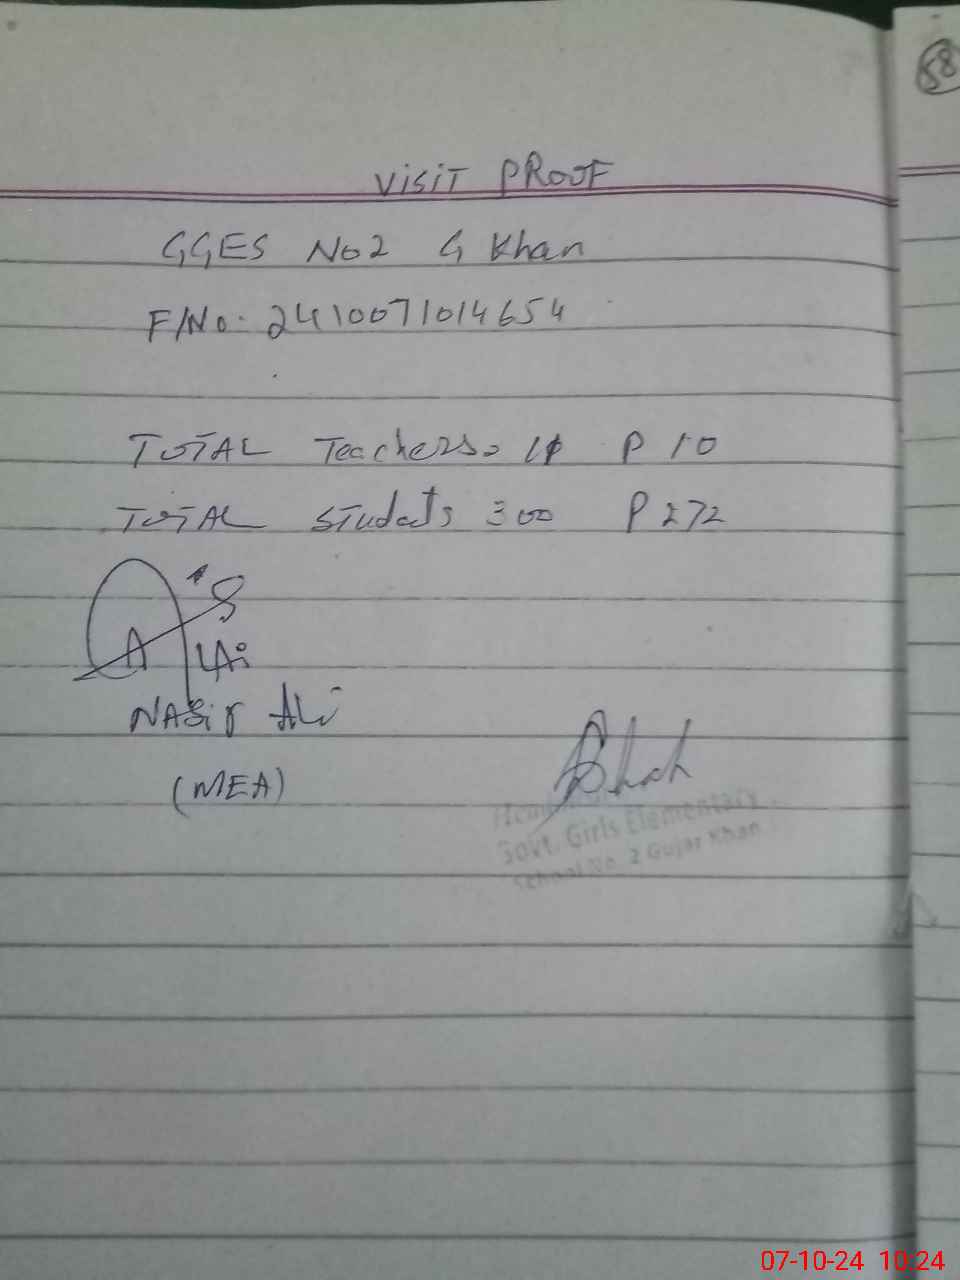 58
VISIT PROOF
GGES No2 G Khan
F/No. 2410071014654
TOTAL Teachers= 11 P 10
TOTAL Students 300 P 272
NASIR ALi
(MEA)
Govt. Girls Elementary
School No. 2 Gujar Khan
07-10-24 10:24